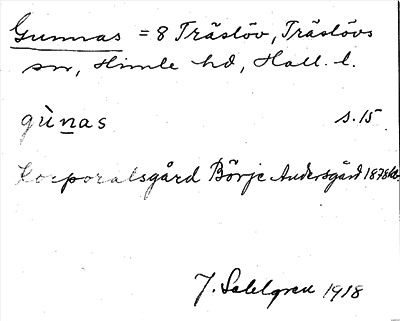 Gunnas = 8 Träslöv, Träslövs
sn, Himle hd, Hall. l.
gùnas s. 15
Korporalsgård Börje Andersgård 1878
J. Sahlgren 1918